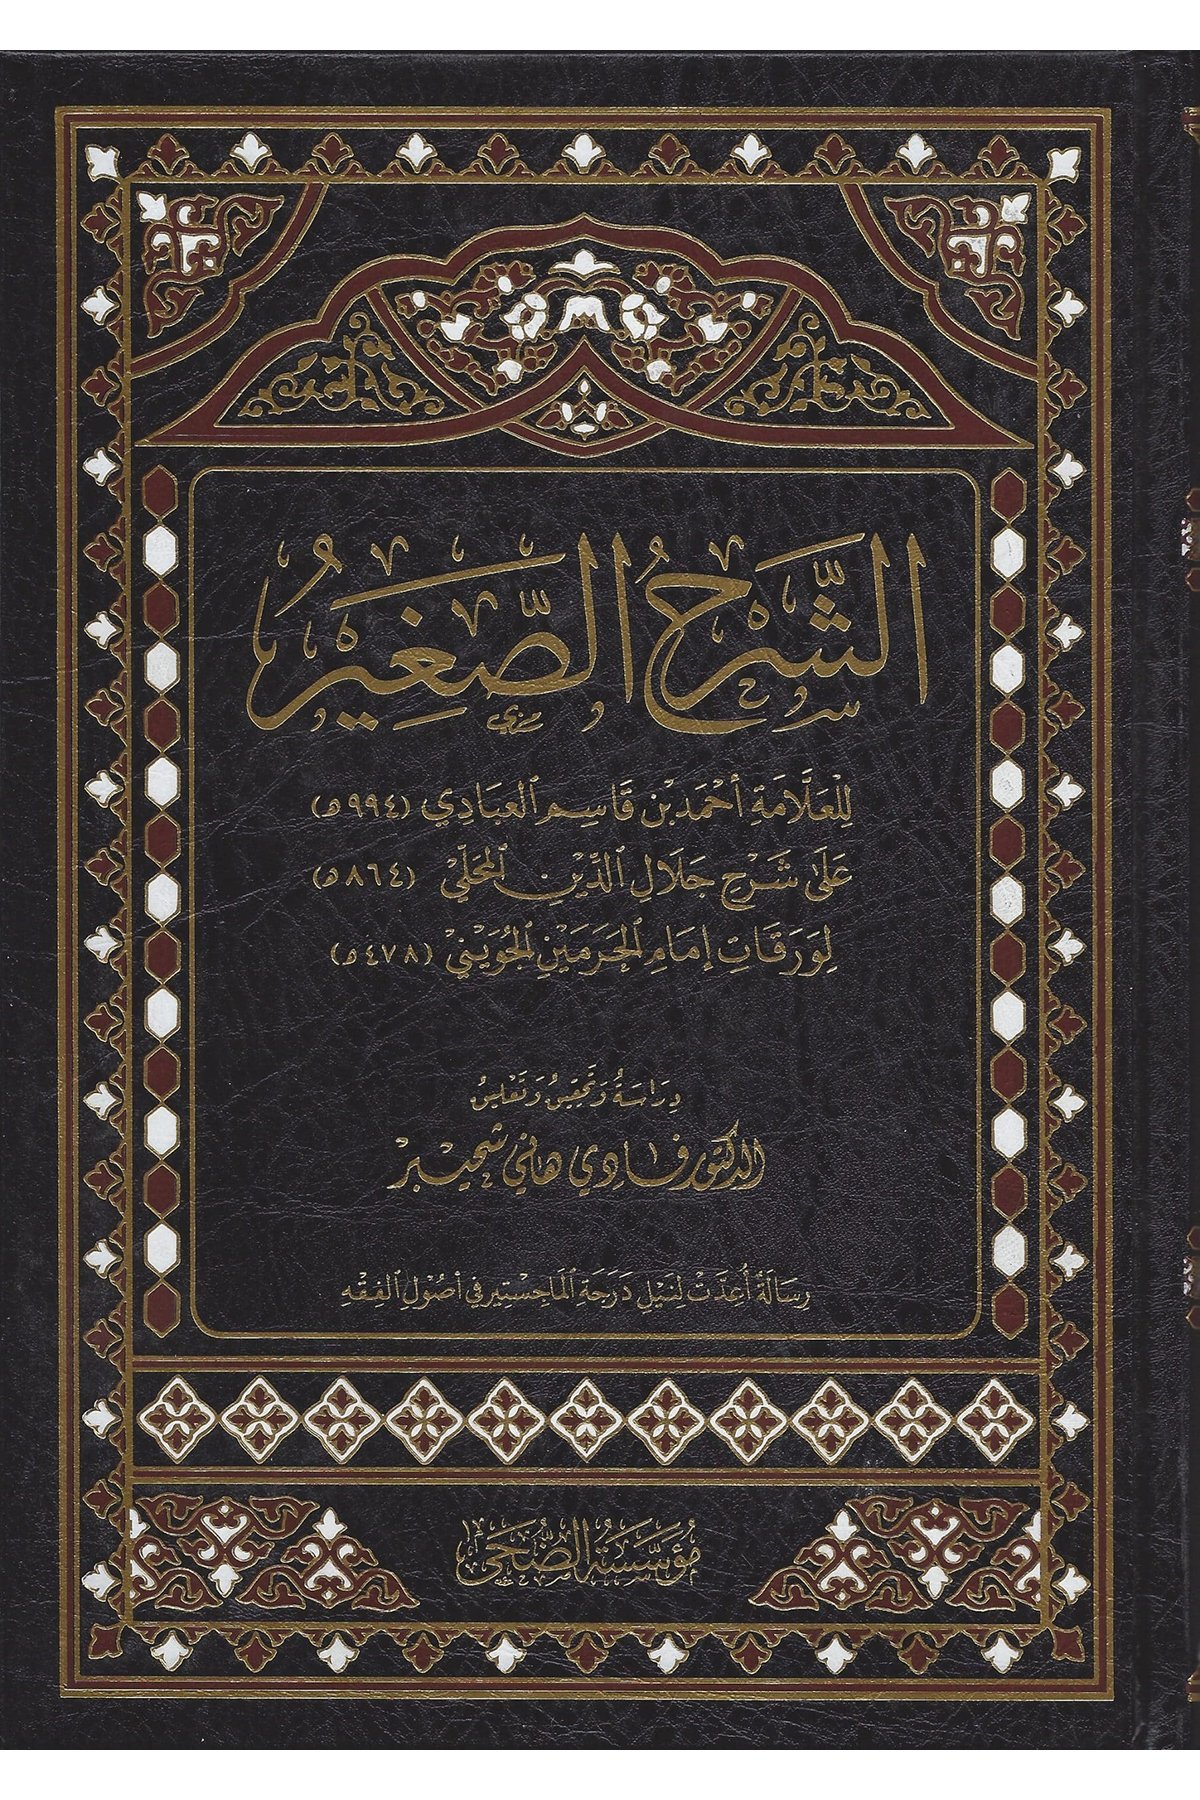 الشَّرْحُ الصَّغِيرُ
لِلْعَلَّامَةِ أَحْمَد بْن قَاسِم العبَادِي (٩٩٤هـ)
عَلَى شَرْح جَلَالِ الدِّيْنِ المَحَلِّيْ (٨٦٤هـ)
لِوَرَقَاتِ إِمَامِ الحَرَمَيْنِ الجُوَيْنِيْ (٤٧٨هـ)
دِرَاسَةُ وَتَحْقِيقُ وَتَعْلِيقُ
الدكتور فَادِي هَاني شحيبر
رِسَالَةٌ أُعِدَّتْ لِنَيْلِ دَرَجَةِ المَاجِسْتِير في أصُولِ الفِقْهِ
مُؤَسَّسَةُ الضُّحَى